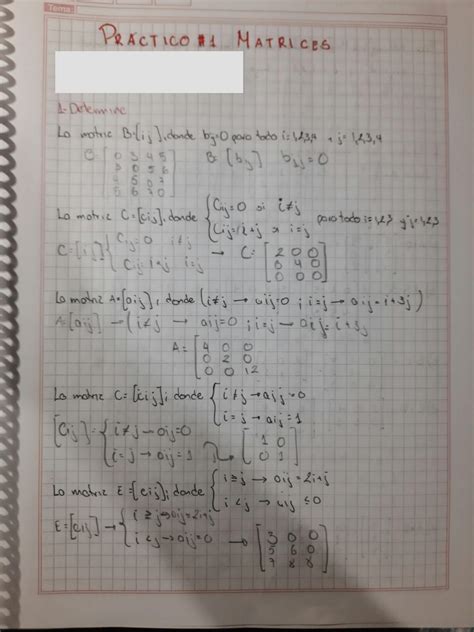 Tema
PRÁCTICO #1 MATRICES
1- Determine
La matriz B=[ij], donde bij=0 para todo i=1,2,3,4 + j=1,2,3,4
0 3 4 5
B=[bij] bij=0
3 0 5 6
La matriz C=[cij], donde { Cij=0 si i≠j
Cij=i+j si i=j
para todo i=1,2,3 y j=1,2,3
Cij=0 i≠j
Cij=i+j i=j
→ C= [2 0 0
0 4 0
0 0 0]
La matriz A=[aij], donde (i≠j → aij=0 ; i=j → aij=i+3j)
A=[aij] → (i≠j → aij=0 ; i=j → aij=i+3j
A= [4 0 0
0 2 0
0 0 12]
La matriz C=[cij], donde { i≠j → aij=0
i=j → aij=1
[Cij] = { i≠j → aij=0
i=j → aij=1
[1 0
0 1]
La matriz E=[eij], donde { i≥j → aij=2i+j
i<j → aij≤0
E=[eij] → { i≥j→aij=2i+j
i<j→aij=0
→ [3 0 0
5 6 0
7 8 8]